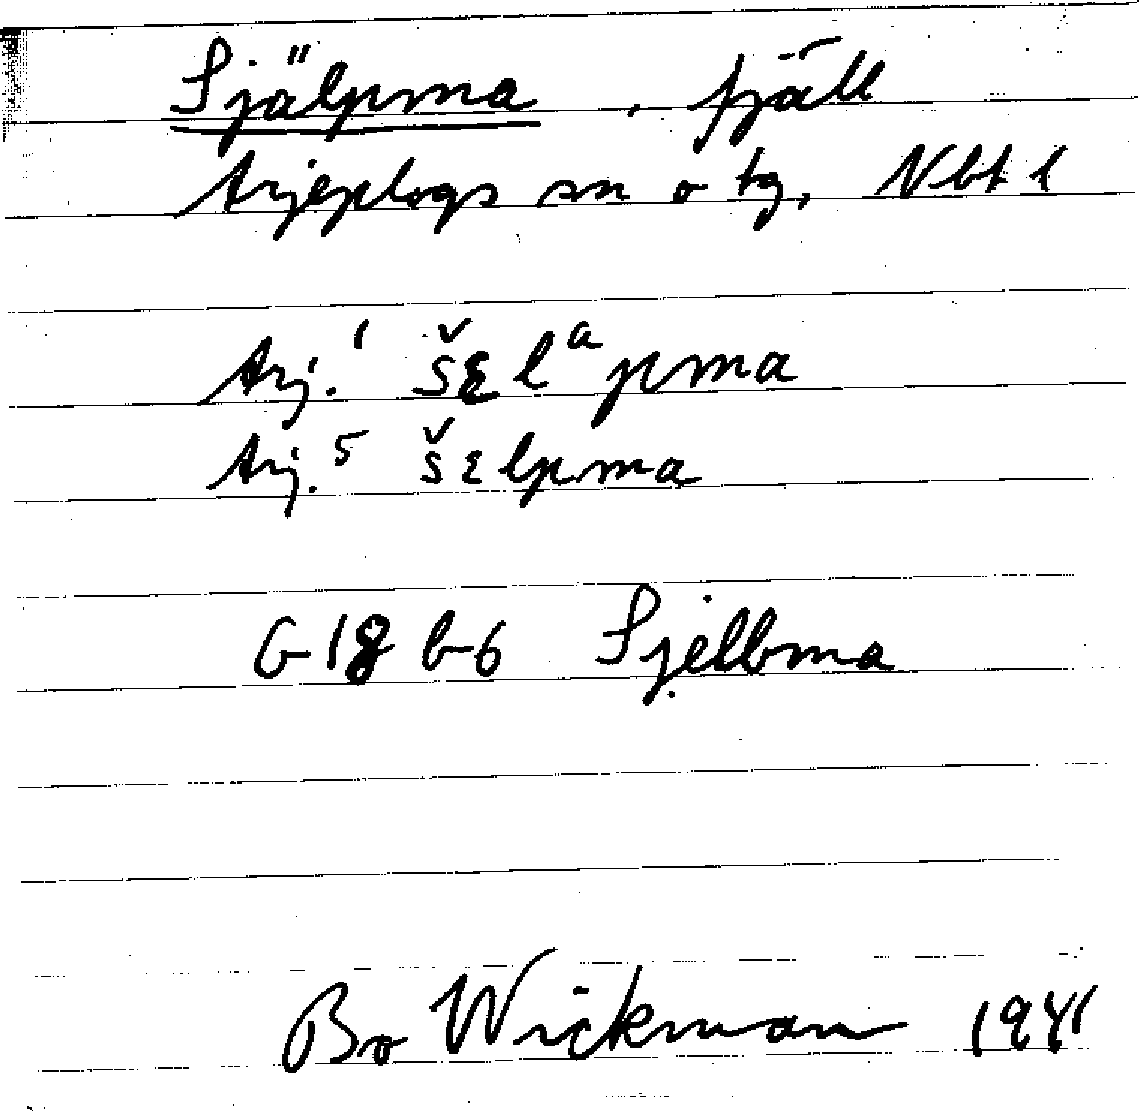 Själpma, fjäll
Arjeplogs sn o tg, Nbt l
Arj.¹ šᶓlᵃpma
Arj.⁵ šɛlpma
G 18 b-6 Sjelbma
Bo Wickman 1941